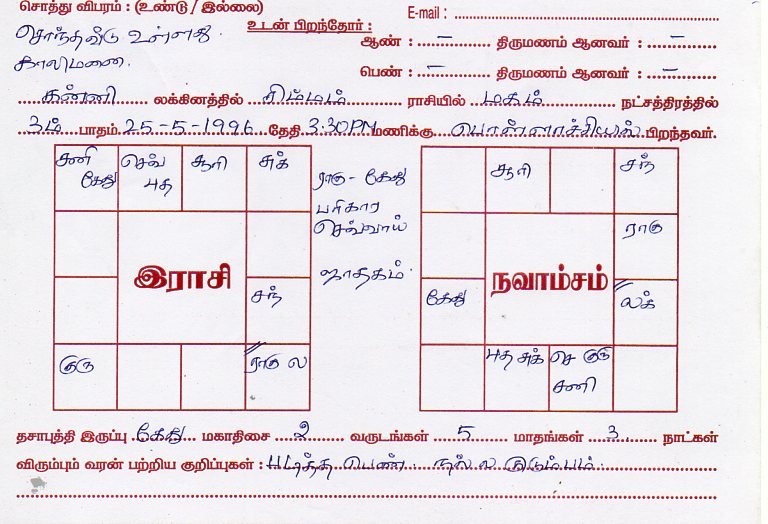 சொத்து விபரம் : (உண்டு / இல்லை)
E-mail :
சொந்தவீடு உள்ளது
உடன் பிறந்தோர் :
காலிமனை.
ஆண் : – திருமணம் ஆனவர் : –
பெண் : – திருமணம் ஆனவர் : –
கன்னி லக்கினத்தில் சிம்மம் ராசியில் மகம் நட்சத்திரத்தில்
3ம் பாதம் 25-5-1996 தேதி 3:30PM மணிக்கு பொள்ளாச்சியில் பிறந்தவர்.
சனி கேது
செவ் புத
சூரி
சுக்
ராகு - கேது
பரிகார
செவ்வாய்
ஜாதகம்.
இராசி
சந்
குரு
ராகு ல
சூரி
சந்
ராகு
நவாம்சம்
கேது
லக்
புத சுக்
செ குரு
சனி
தசாபுத்தி இருப்பு கேது மகாதிசை 2 வருடங்கள் 5 மாதங்கள் 3 நாட்கள்
விரும்பும் வரன் பற்றிய குறிப்புகள் : படித்த பெண். நல்ல குடும்பம்.